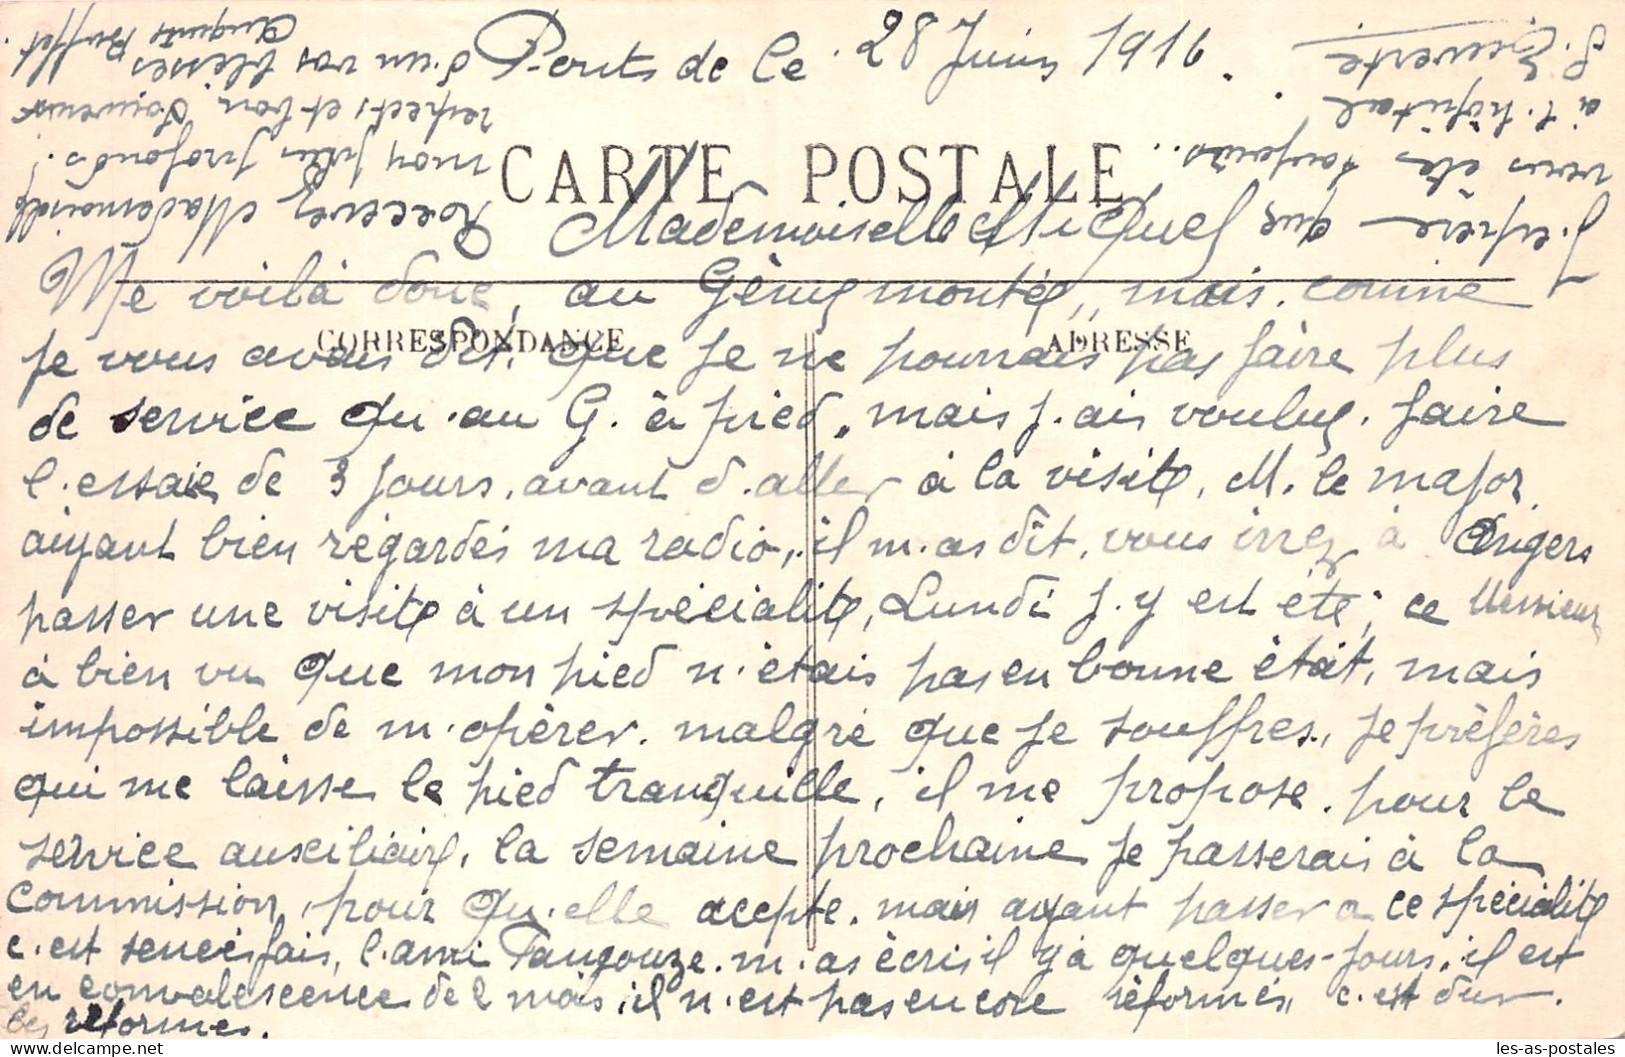 Ponts de Ce. 28 Juin 1916.
CARTE POSTALE
Mademoiselle Miquel
Me voilà donc, au Génie monté, mais. comme
CORRESPONDANCE
ADRESSE
je vous avais dit. que je ne pourrais pas faire plus
de service qu.au G. à pied, mais j.ais voulu. faire
l.essaie de 3 jours. avant d.aller à la visite, M. le major
aiyant bien régardés ma radio, il m.as dît, vous irrez à Angers
passer une visite à un spécialité, Lundi j.y est été, ce Messieur
à bien vu que mon pied n'étais pas en bonne état, mais
impossible de m.opérer. malgré que je souffres, je préfères
qui me laisse le pied tranquille, il me propose. pour le
service auxiliaire, la semaine prochaine je passerais à la
commission, pour qu.elle acepte. mais ayant passer a ce spécialité
c.est senées fais, l.ami Tangouze. m.as écris il y a quelques jours, il est
en convalescence de 2 mois, il n'est pas encore réformés, c.est dur
les réformes.
J.espère que
vous êtes toujours..
à l.hôpital
S. Euverte
Recevez Mademoiselle
mon plus profonds.
respects et bon souvenir
d'un vos blésses
Auguste Buffet.
les-as-postales